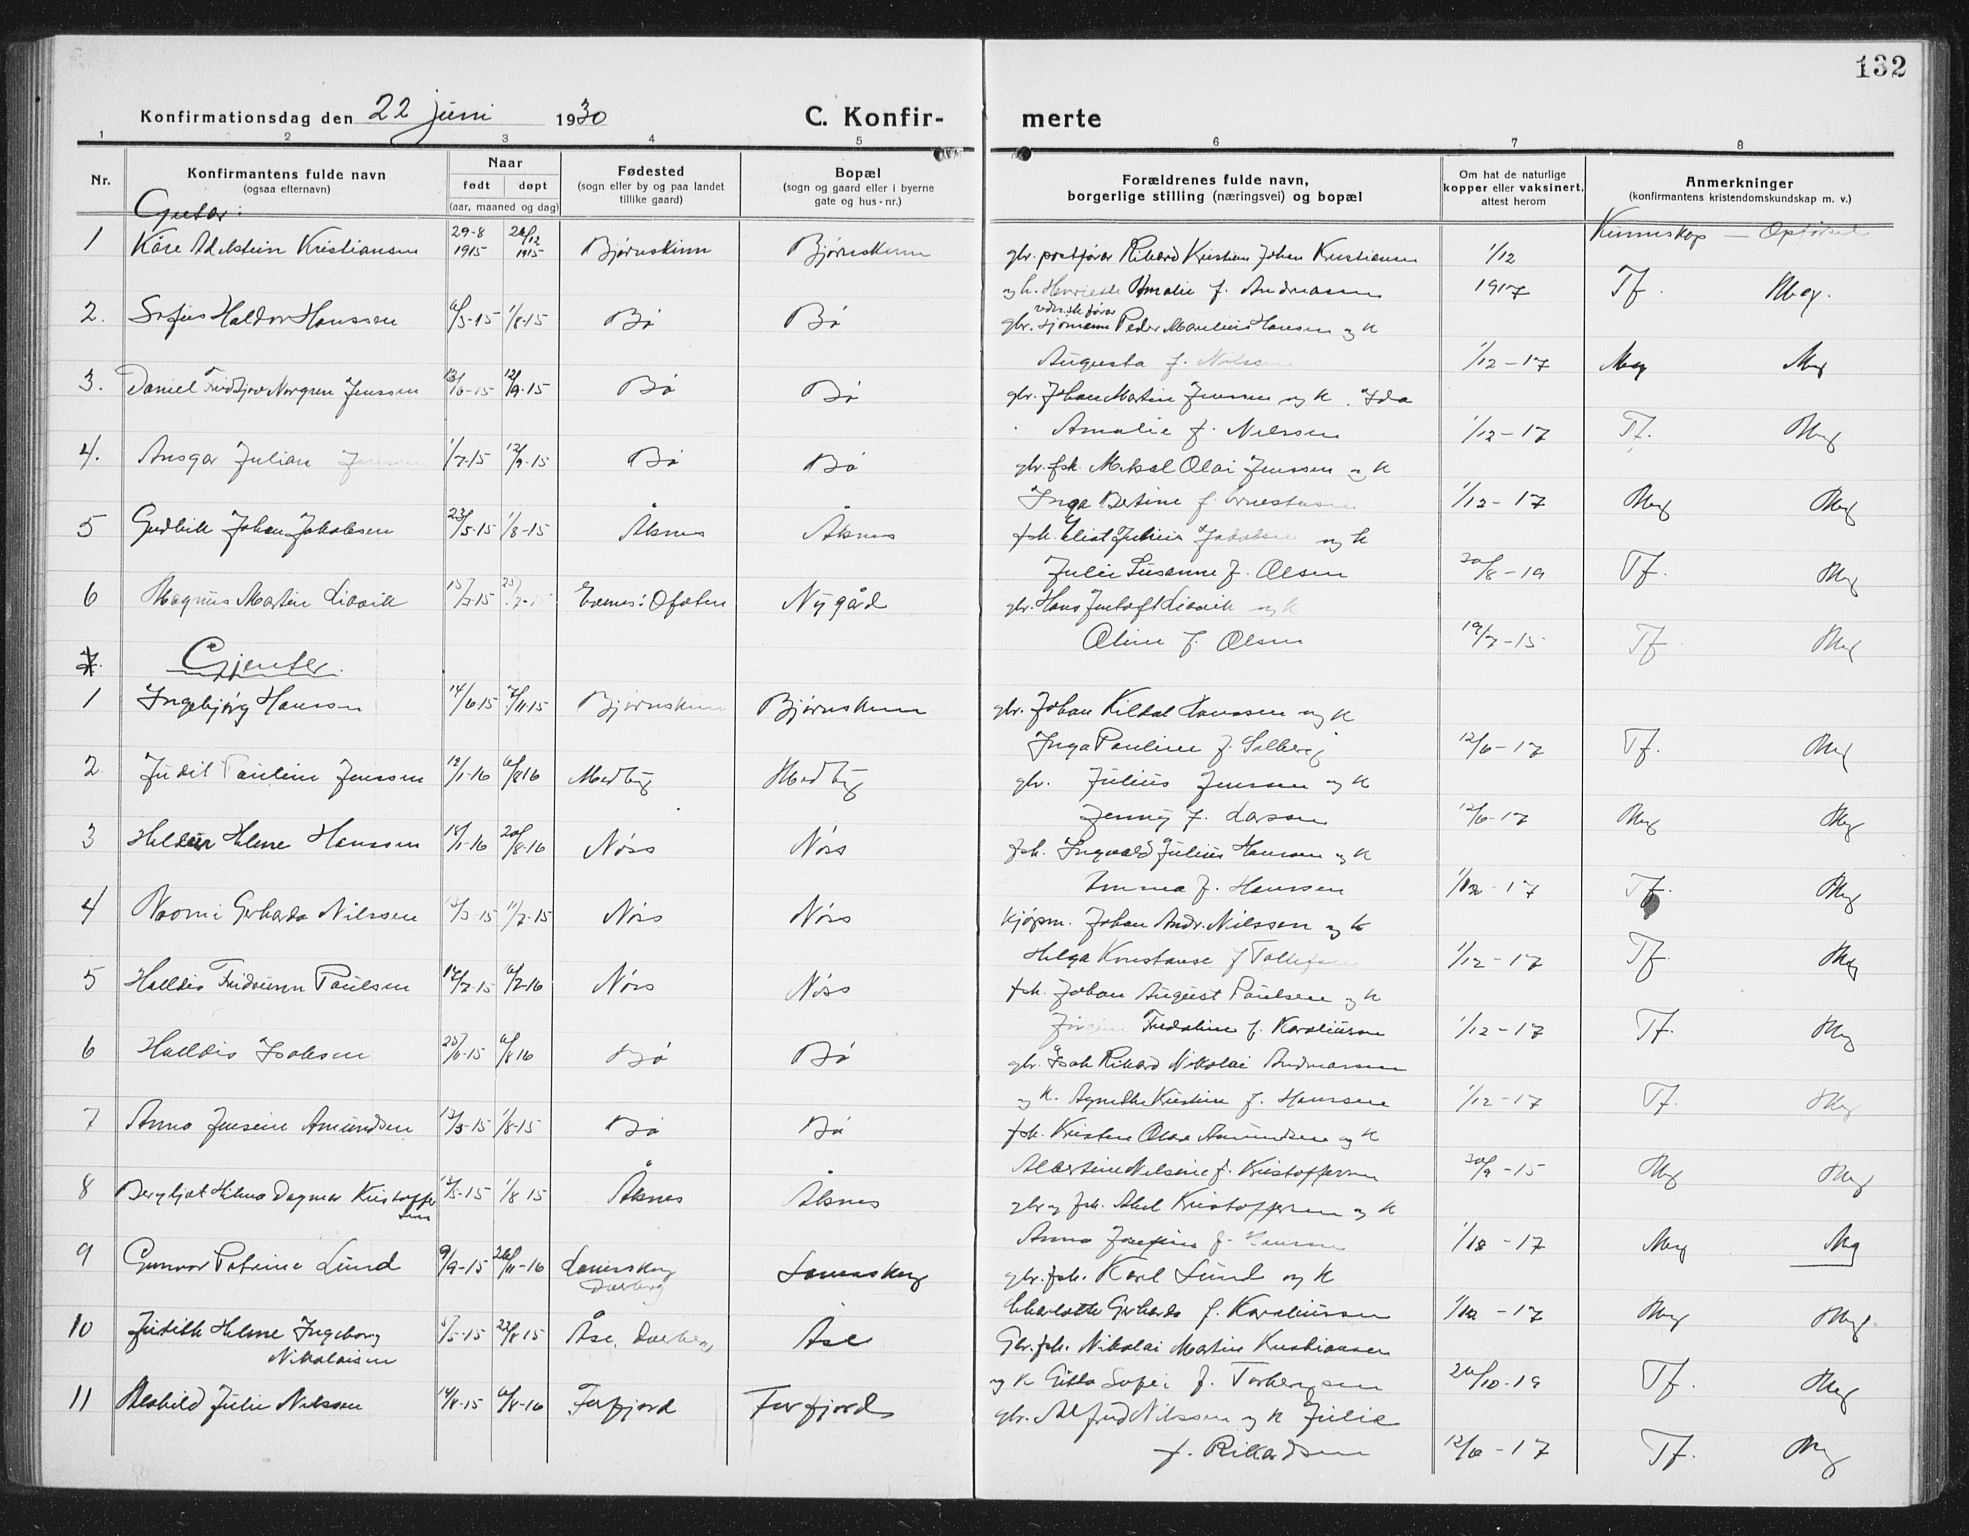 132
Konfirmationsdag den 22 juni 1930 C. Konfir- merte
1 2 3 4 5 6 7 8
Nr. Konfirmantens fulde navn (ogsaa efternavn) Naar født døpt (aar, maaned og dag) Fødested (sogn eller by og paa landet tillike gaard) Bopæl (sogn og gaard eller i byerne gate og hus-nr.) Forældrenes fulde navn, borgerlige stilling (næringsvei) og bopæl Om hat de naturlige kopper eller vaksinert, attest herom Anmerkninger (konfirmantens kristendomskundskap m. v.)
Gutar: Kunnskap — Opførsel
1 Kåre Adelstein Kristiansen 29-8 1915 26/12 1915 Bjørnskinn Bjørnskinn gbr. postfører Rikard Kristian Johan Kristiansen 1/12
og h. Henriette Amalie f. Andreassen 1917 Tf. Meg.
2. Sofus Haldor Hanssen 6/5-15 1/8-15 Bø Bø gbr. sjømann Peder Hansen og k
Augusta f. Nilssen 1/12-17 Meg Meg
3. Daniel Fridtjov Norgren Jenssen 13/6-15 12/9-15 Bø Bø gbr. Johan Martin Jenssen og k. Ida
Amalie f. Nilssen 1/12-17 Tf. Meg
4. Ansgar Julian Jenssen 1/7-15 12/9-15 Bø Bø gbr. fsk. Mikal Olai Jenssen og k
Inga Bertine f. 1/12-17 Meg Meg
5 Gudleik Johan Jakobsen 23/5-15 1/8-15 Åknes Åknes fsk. Eliot Julius Jakobsen og k
Julie Susanne f. Olsen 20/8-19 Tf. Meg
6 Magnus Martin Liavik Evenes i Ofoten Nygård gbr. Hans Liavik og k
Oline f. Olsen 19/7-15 Tf Meg
7. Gjenter.
1 Ingebjørg Hanssen 14/6-15 7/11-15 Bjørnskinn Bjørnskinn gbr. Johan Kildal Hanssen og k
Inga Pauline f. Solberg 12/6-17 Tf. Meg
2 Judit Pauline Jenssen 12/1-16 6/8 16 Medby Medby gbr. Julius Jenssen og k
Jenny f. Larssen 12/6-17 Meg Meg
3 Helene Hanssen 18/1-16 20/8-16 Nøss Nøss fsk. Ingvald Julius Hanssen og k
Emma f. Hanssen 1/12-17 Tf. Meg
4 Naomi Gerharda Nilssen 11/7-15 Nøss Nøss kjøpm. Johan Andr. Nilssen og k
Helga Konstanse f Tollefsen 1/12-17 Tf Meg
5 Halldis Fridunn Paulsen 17/7-15 6/2-16 Nøss Nøss fsk. Johan August Paulsen og k
Fredoline f. Karoliussen 1/12-17 Tf. Meg
6 Halldis Isaksen 25/11-15 6/8 16 Bø Bø gbr. Isak Rikard Nikolai Andreassen
og k. Agnethe Kristine f. Hanssen 1/12-17 Tf. Meg
7 Anna Jensine Amundsen 13/3-15 1/8-15 Bø Bø fsk. Kristen Olai Amundsen og k
Albertine Nilsine f. Kristoffersen 30/9-15 Meg Meg
8 Bergljot Hilma Dagmar Kristoffersen 13/5-15 1/8 15 Åknes Åknes gbr og fsk. Abel Kristoffersen og k
Anna Josefine f. Hanssen 1/12-17 Meg Meg
9 Gunvor Petrine Lund 9/9-15 26/11-16 Laneskog Dverberg Laneskog gbr. fsk. Karl Lund og k
Charlotte Gerharda f. Karoliussen 1/12-17 Meg Meg
10 Judith Helene Ingeborg Nikolaisen 5/5-15 22/8-15 Åse, Dverberg Åse Gbr. fsk. Nikolai Martin Kristiansen
og k Gitta Sofie f. Torbergsen 20/10-19 Tf. Meg
11 Alvhild Julie Nilssen 14/8-15 6/8-16 Forfjord Forfjord gbr. Alfred Nilssen og k Julie
f. Rikardsen 12/6-17 Tf. Meg